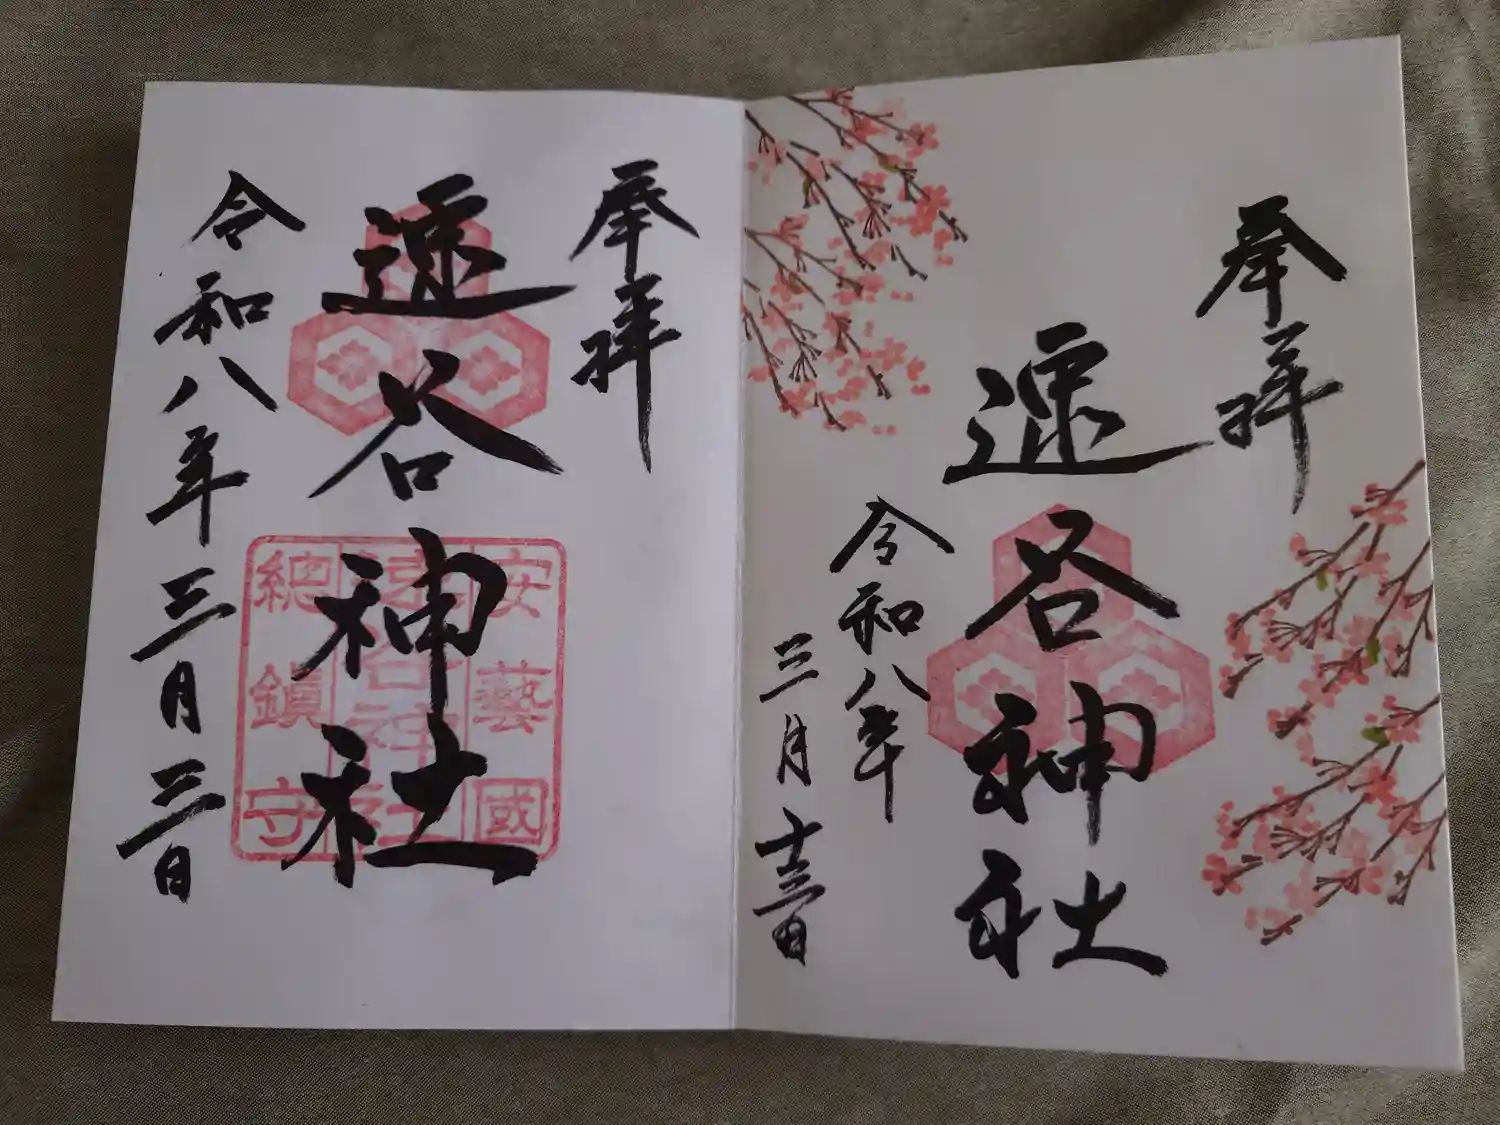 奉拝
速谷神社
令和八年
三月十三日
奉拝
速谷神社
安藝國
速谷神社
總鎮守
令和八年三月三日